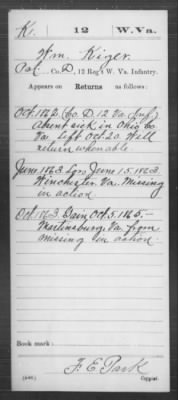 K. 12 W.Va.
Wm. Kizer
Pvt., Co. D, 12 Reg't W. Va. Infantry.
Appears on Returns as follows:
Oct. 1862, (Co. D. 12 Va. Inf.)
Absent sick in Ohio Co.
Va. Left Oct. 20. Will
return when able.
June 1863 Loss June 15, 1863.
Winchester, Va. Missing
in action.
Oct. 1863. Gain Oct. 5, 1863.—
Martinsburg, Va. from
missing in action.
Book mark:
(546) F. E. Park
Copyist.